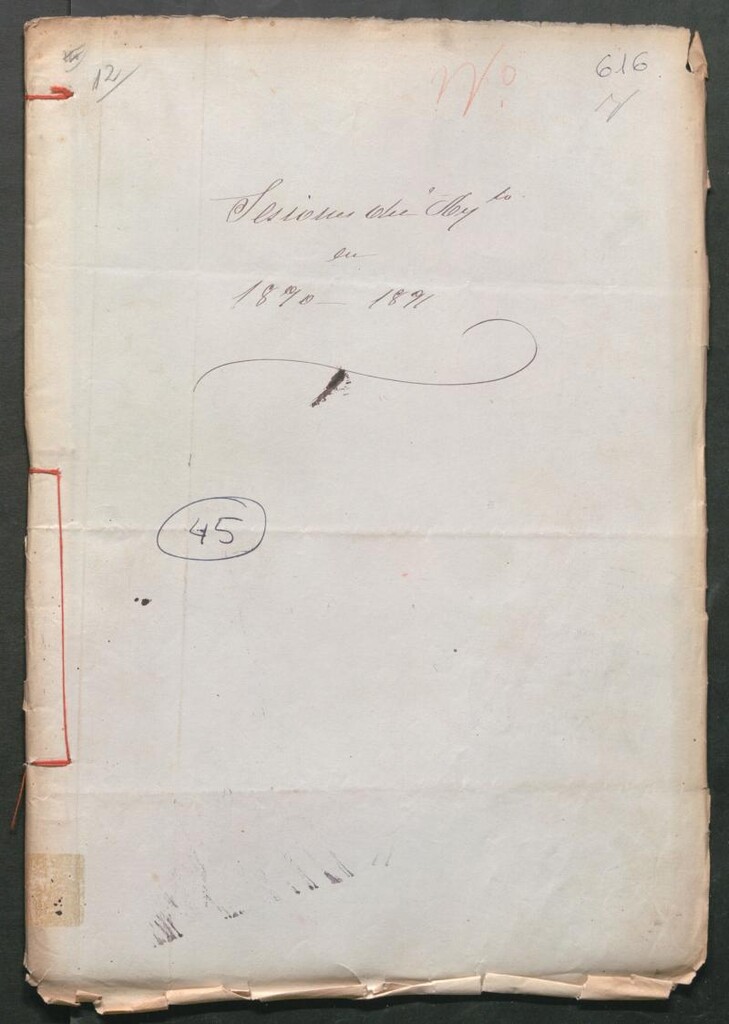 12/
Nº
616
Sesiones del Ayto
en
1890 — 1891
45